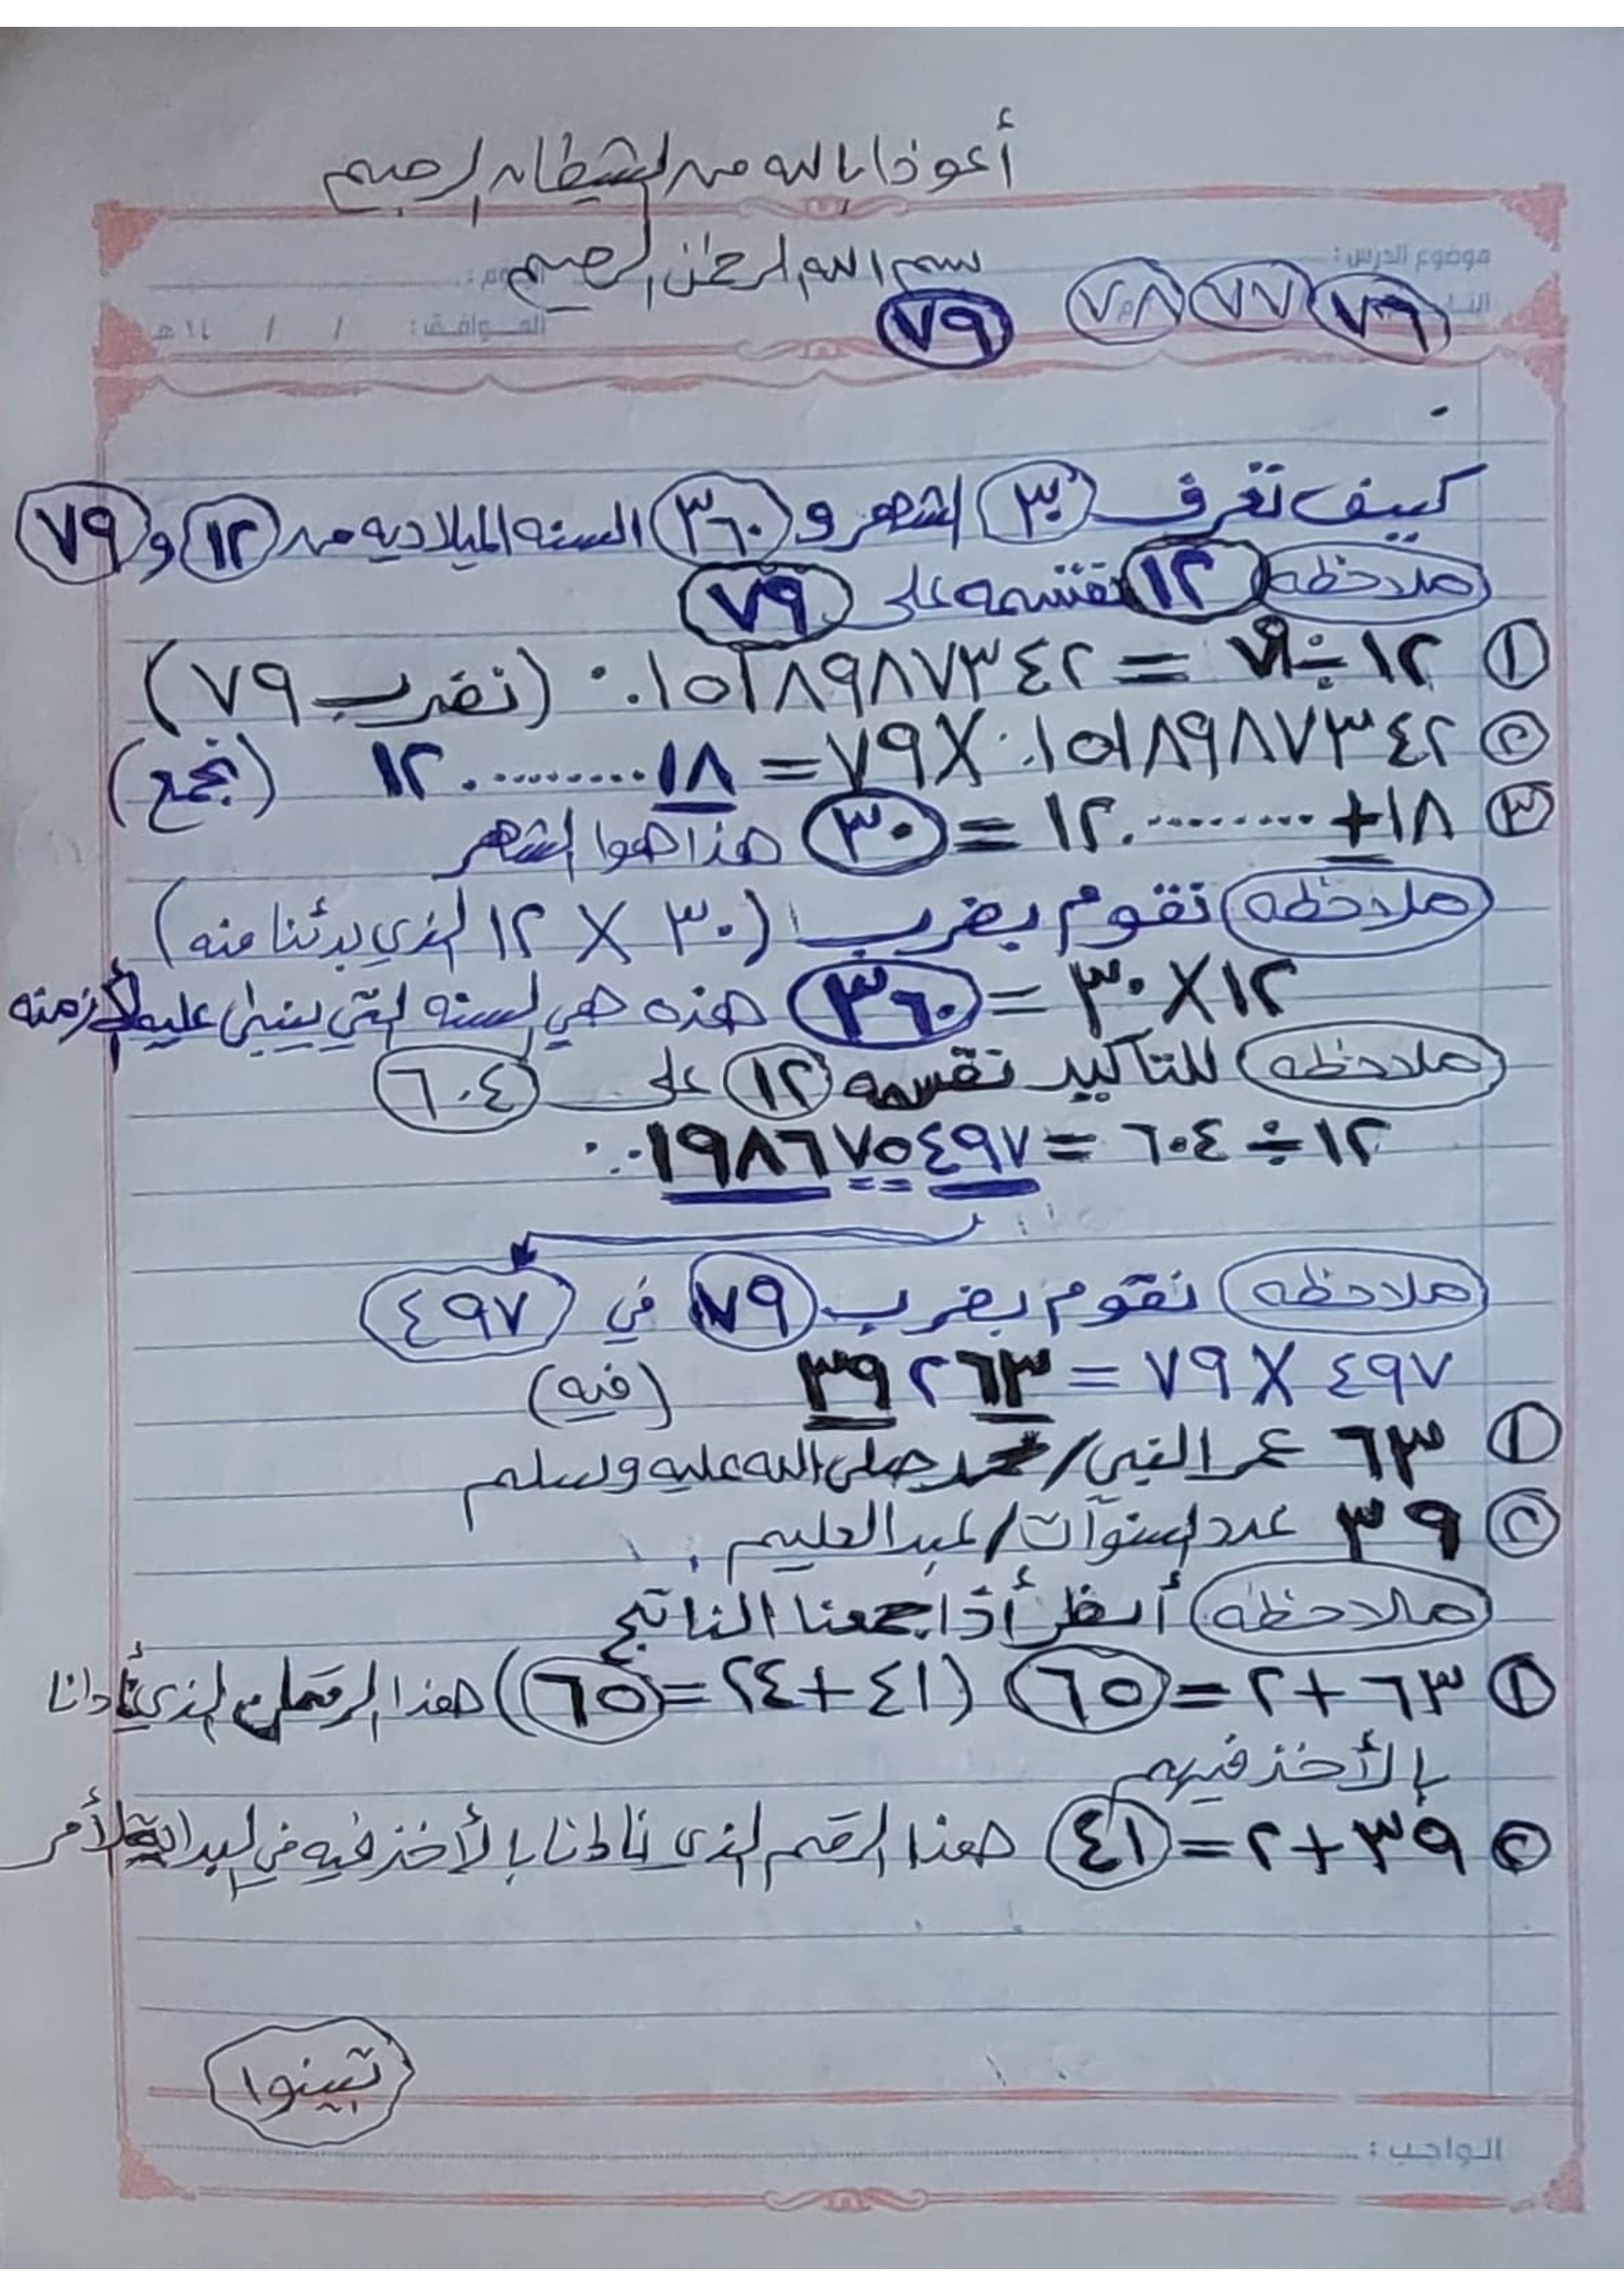 أعوذ بالله من الشيطان الرجيم
بسم الله الرحمن الرحيم
موضوع الدرس :
٧٦ ٧٧ ٧٨ ٧٩
الموافق : / / ١٤ هـ
كييف تعرف ٣٠ الشهر و ٣٦٠ السنه الميلاديه من ١٢ و ٧٩
ملاحظه ١٢ نقسمه على ٧٩
١ ١٢ ÷ ٧٩ = ٠.١٥١٨٩٨٧٣٤٢ (نضرب ٧٩)
٢ ٠.١٥١٨٩٨٧٣٤٢ X ٧٩ = ١٢.........١٨ (نجمع)
٣ ١٨ + ١٢.......... = ٣٠ هذا هوا الشهر
ملاحظه نقوم بضرب (٣٠ X ١٢ الذي بدئنا منه)
١٢ X ٣٠ = ٣٦٠ هذه هي السنه التي ينبني عليه الأزمنه
ملاحظه للتأكيد نقسمه ١٢ على ٦٠٤
١٢ ÷ ٦٠٤ = ٠.٠١٩٨٦٧٥٤٩٧
ملاحظه نقوم بضرب ٧٩ في ٤٩٧
٤٩٧ X ٧٩ = ٣٩٢٦٣ (فيه)
١ ٦٣ عمر النبي / محمد صلى الله عليه وسلم
٢ ٣٩ عدد السنوآت / عبد العليم
ملاحظه أنظر أذا جمعنا الناتج
١ ٦٣ + ٢ = ٦٥ (٤١ + ٢٤ = ٦٥) هذا الرقم الذي نادانا
بالأخذ فيهم
٢ ٣٩ + ٢ = ٤١ هذا الرقم الذي نادنا بالأخذ فيه في البداية الأمر
تبينوا
الواجب :